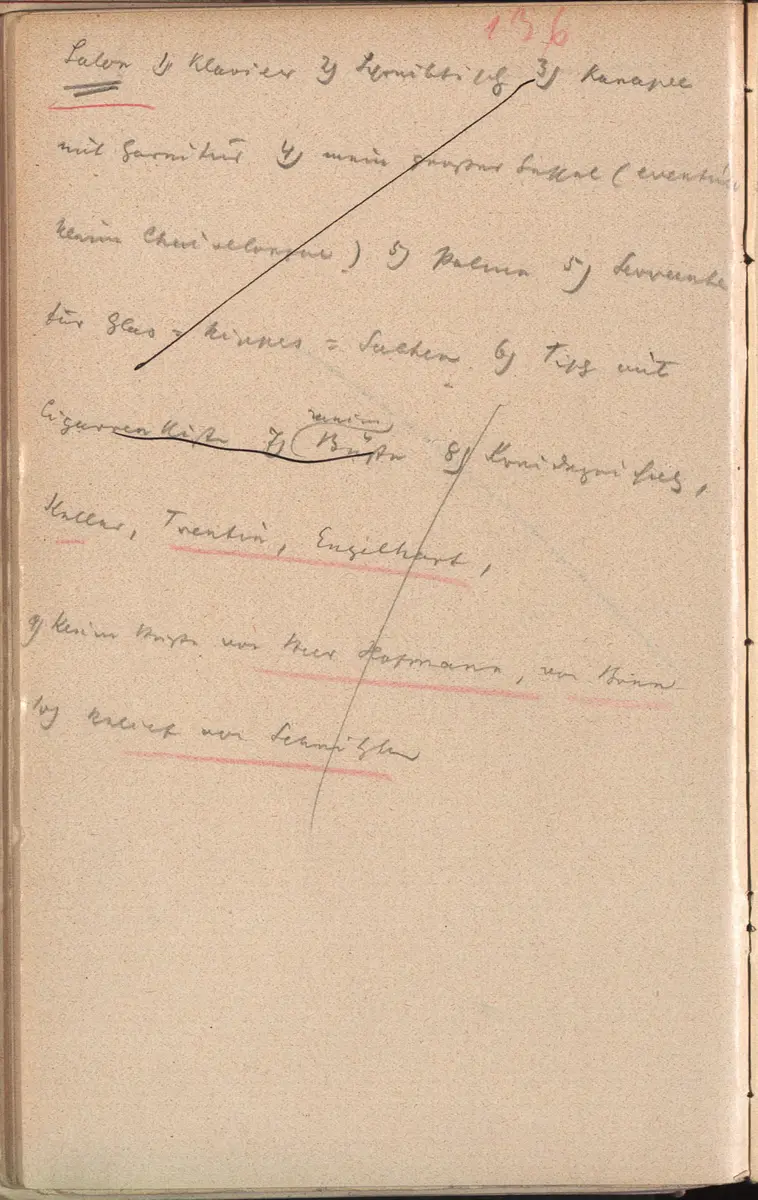 136
Salon 1) Klavier 2) Schreibtisch 3) Kanapee
mit Garnitur 4) mein großer Sessel (eventuell
kleine Chaiselongue) 5) Palmen 5) Servante
für Glas = = Sachen 6) Tisch mit
Cigarren Kiste 7) meine Büste 8)
Keller, Trentin, Engelhart,
9) kleine Büste von Beer Hofmann, von
10) Relief von Schnitzler